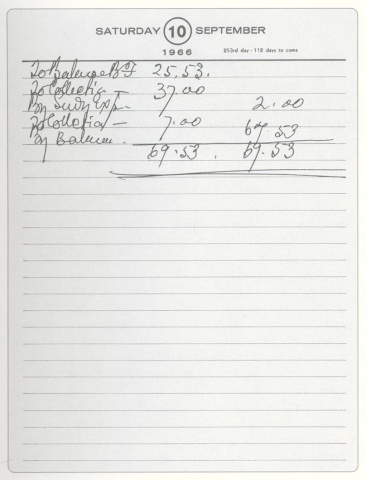 SATURDAY 10 SEPTEMBER
1966 253rd day - 112 days to come
To Balance B/F 25.53.
To Collection 37.00
By Sundry Exp. 2.00
To Collection — 7.00
By Balance. 67.53
69.53. 69.53